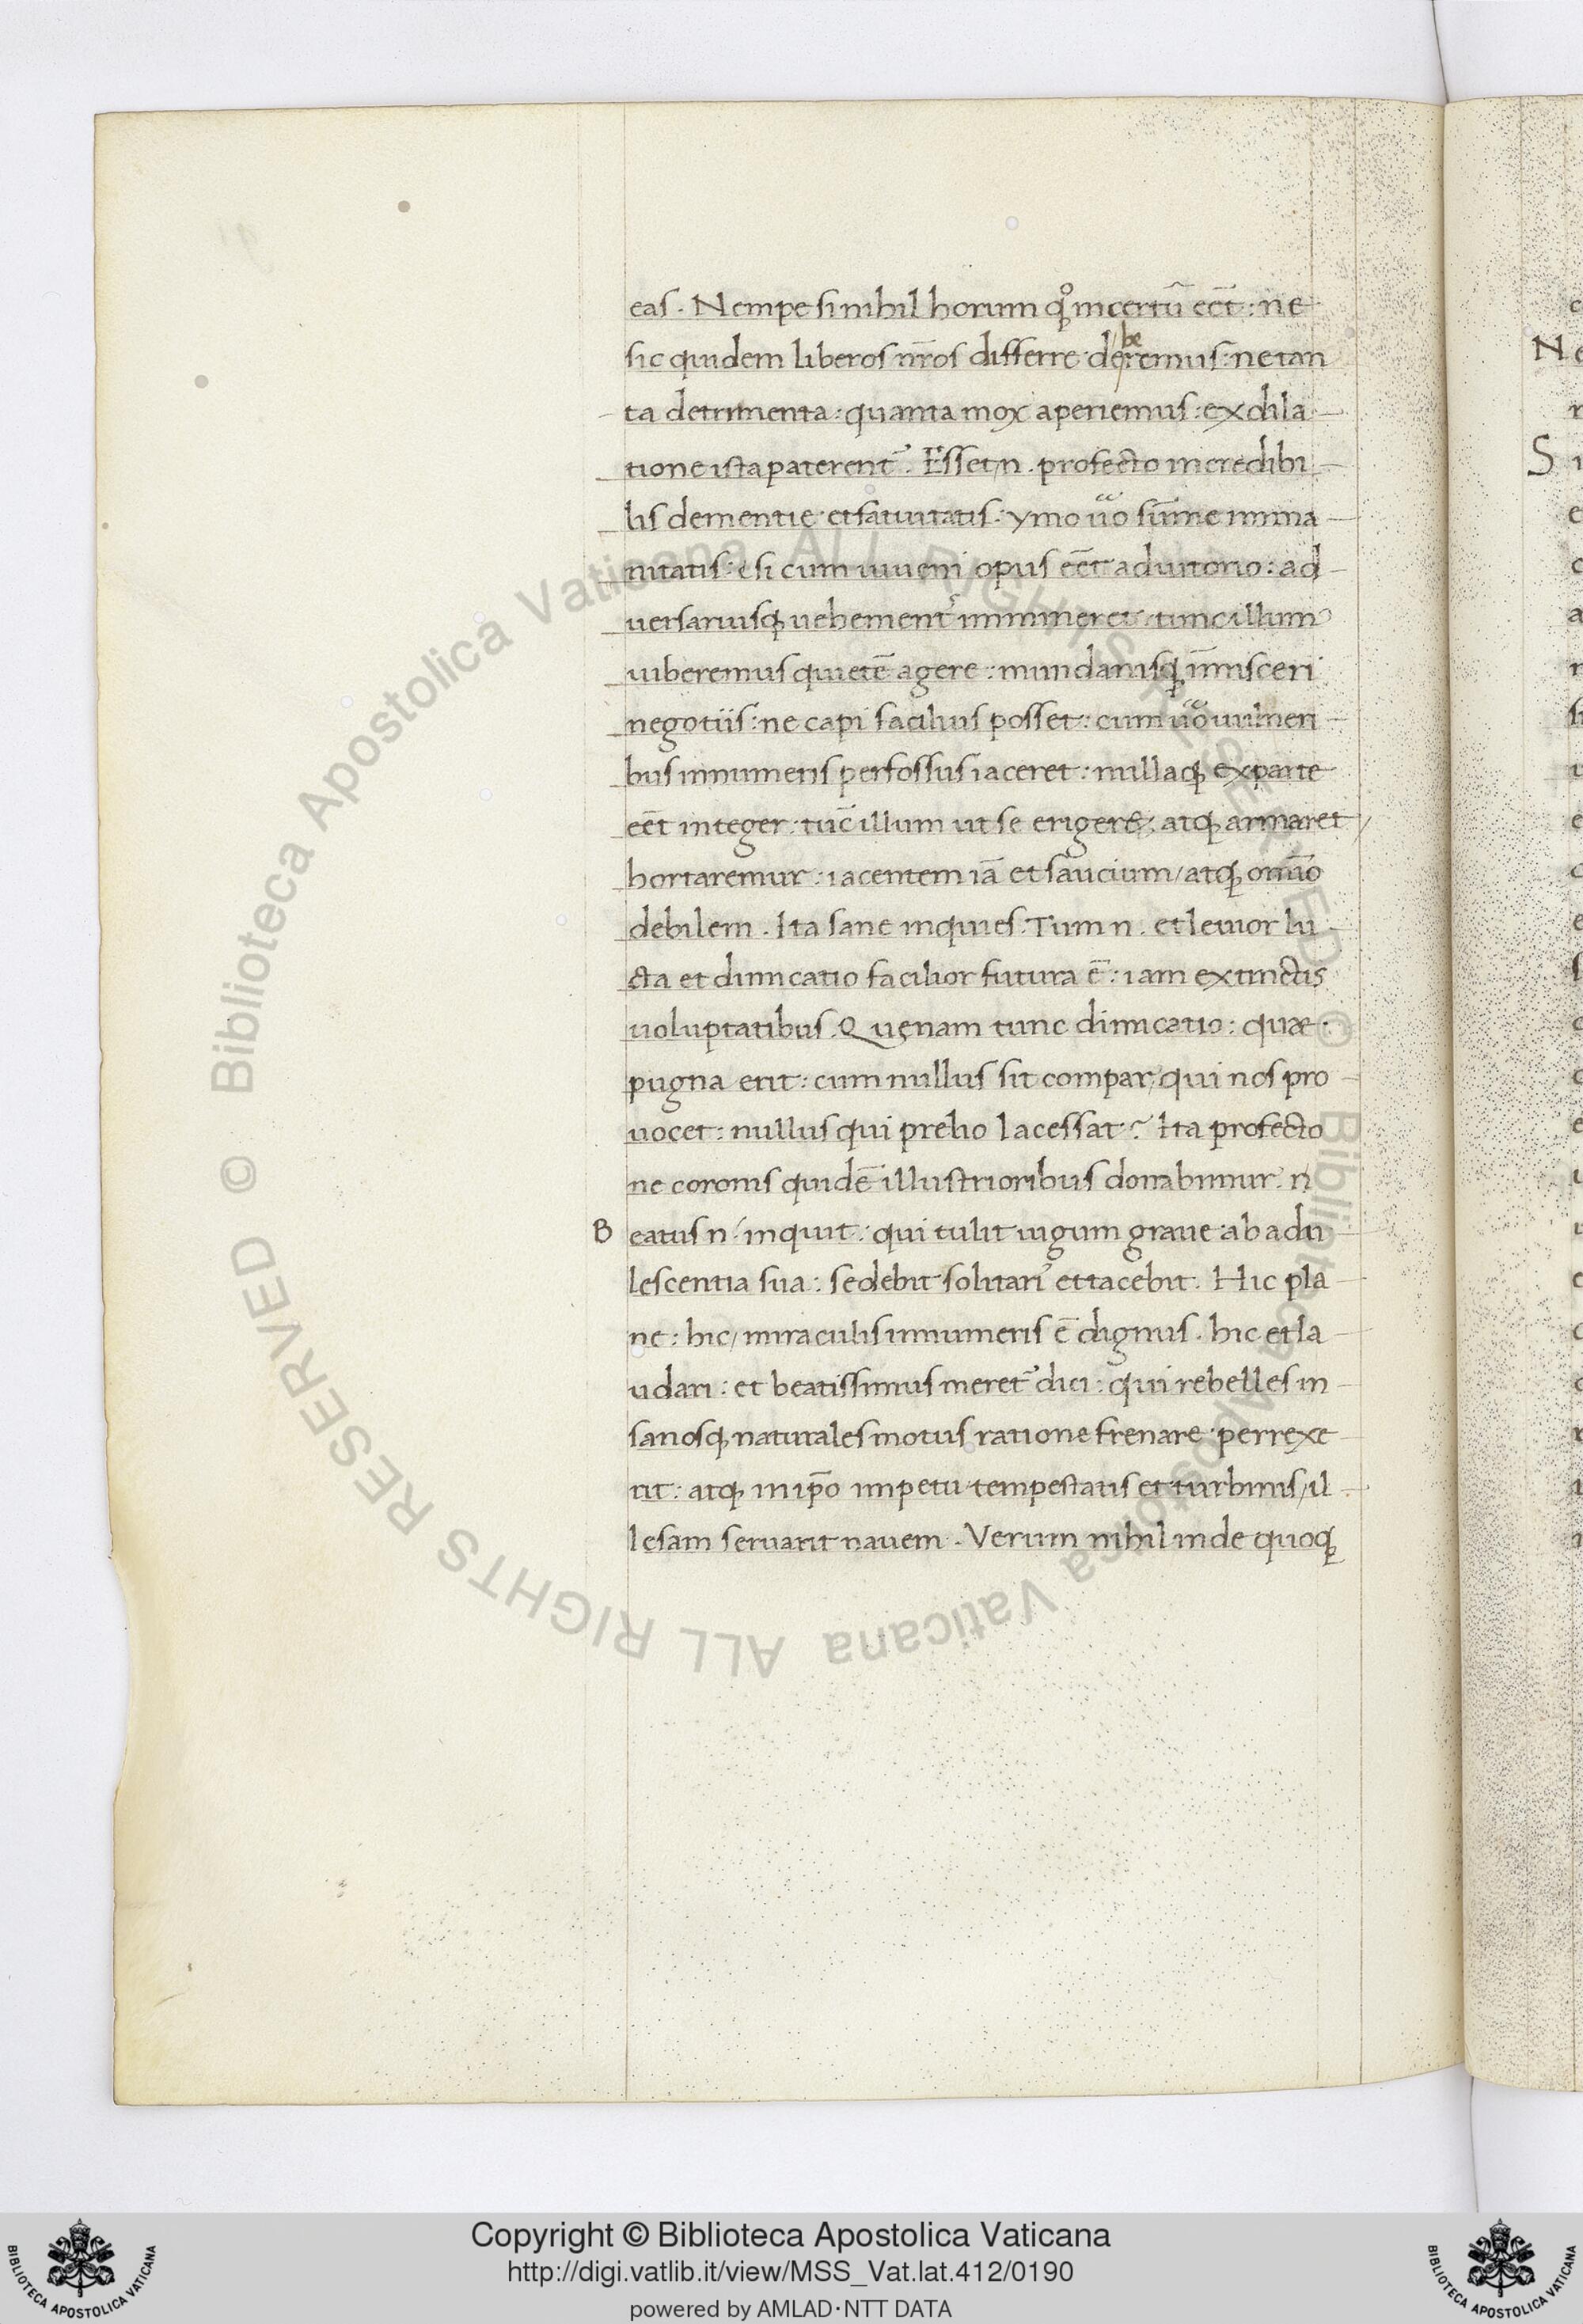 eas. Nempe si nihil horum qͦꝫ incertū eēt: ne
sic quidem liberos nr̄os differre deberemus: ne tan
ta detrimenta: quanta mox aperiemus: ex dila
tione ista paterentᷣ. Esset n. profecto incredibi
lis dementię et fatuitatis. ymo ūo sūme inma
nitatis: si cum iuueni opus eēt adiutorio: ad
uersariusqꝫ uehementᷣ immineret / tunc illum
iuberemus quietē agere: mundanisqꝫ īmisceri
negotiis: ne capi facilius posset: cum ūo uulneri
bus innumeris perfossus iaceret: nullaqꝫ ex parte
eēt integer: tūc illum ut se erigeret: atqꝫ armaret
hortaremur: iacentem iā et saucium / atqꝫ omīo
debilem. Ita sane inquies. Tum n. et leuior lu
cta et dimicatio facilior futura ē: iam extinctis
uoluptatibus. Quęnam tunc dimicatio: quæ
pugna erit: cum nullus sit compar / qui nos pro
uocet: nullus qui prelio lacessat? Ita profecto
ne coronis quidē illustrioribus donabimur. n
B eatus n. inquit: qui tulit iugum graue ab adu
lescentia sua: sedebit solitariꝰ et tacebit. Hic pla
ne: hic / miraculis innumeris ē dignus. hic et la
udari: et beatissimus meretᷣ dici: qui rebelles in
sanosqꝫ naturales motus ratione frenare perrexe
rit: atqꝫ in ip̄o impetu tempestatis et turbinis / il
lęsam seruarit nauem. Verum nihil inde quoqꝫ
Copyright © Biblioteca Apostolica Vaticana
http://digi.vatlib.it/view/MSS_Vat.lat.412/0190
powered by AMLAD·NTT DATA
BIBLIOTECA APOSTOLICA VATICANA
BIBLIOTECA APOSTOLICA VATICANA
© Biblioteca Apostolica Vaticana ALL RIGHTS RESERVED
© Biblioteca Apostolica Vaticana ALL RIGHTS RESERVED